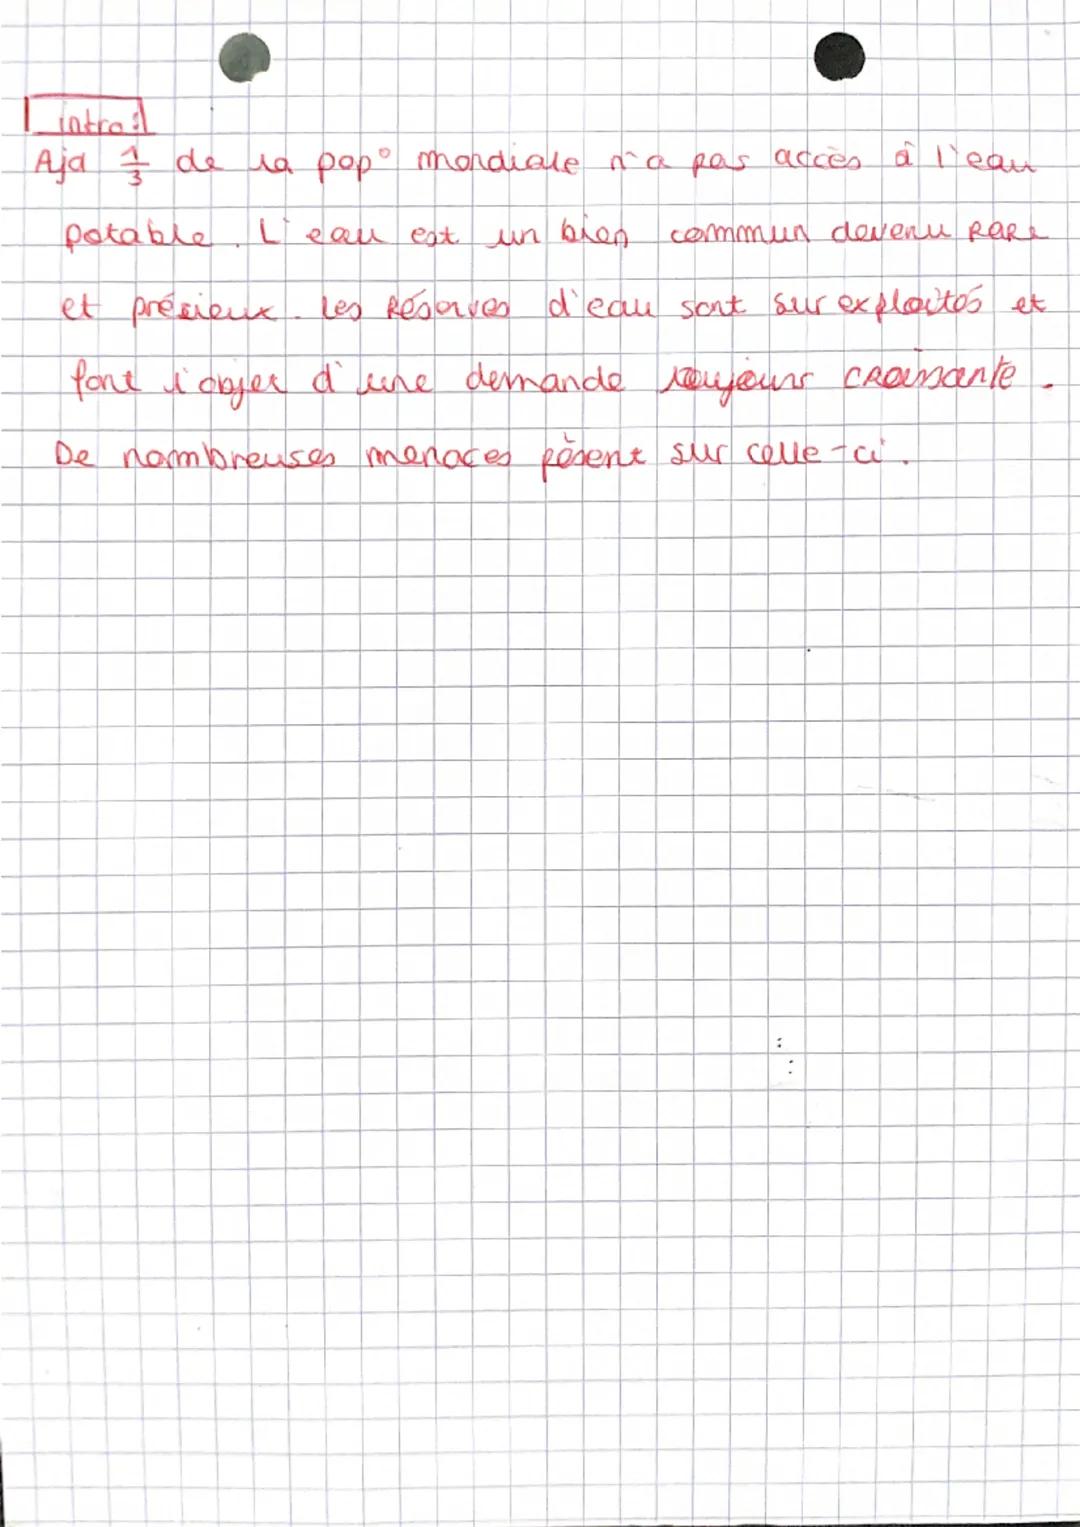 intro :
Aja 1/3 de la pop° mondiale n'a pas accès à l'eau
potable. L'eau est un bien commun devenu rare
et précieux. Les Réserves d'eau sont surexploités et
font l'objet d'une demande toujours croissante.
De nombreuses menaces pèsent sur celle-ci.